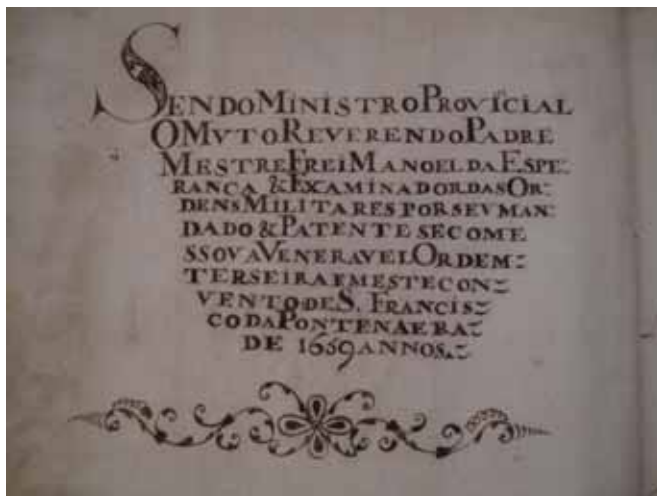 SENDO MINISTRO PROVICIAL
O MVTO REVERENDO PADRE
MESTRE FREI MANOEL DA ESPE-
RANCA & EXAMINADOR DAS OR-
DENS MILITARES POR SEV MAN-
DADO & PATENTE SE COME
SSOV A VENERAVEL ORDEM
TERSEIRA EM ESTE CON-
VENTO DE S. FRANCIS-
CO DA PONTE NA ERA
DE 1659 ANNOS.